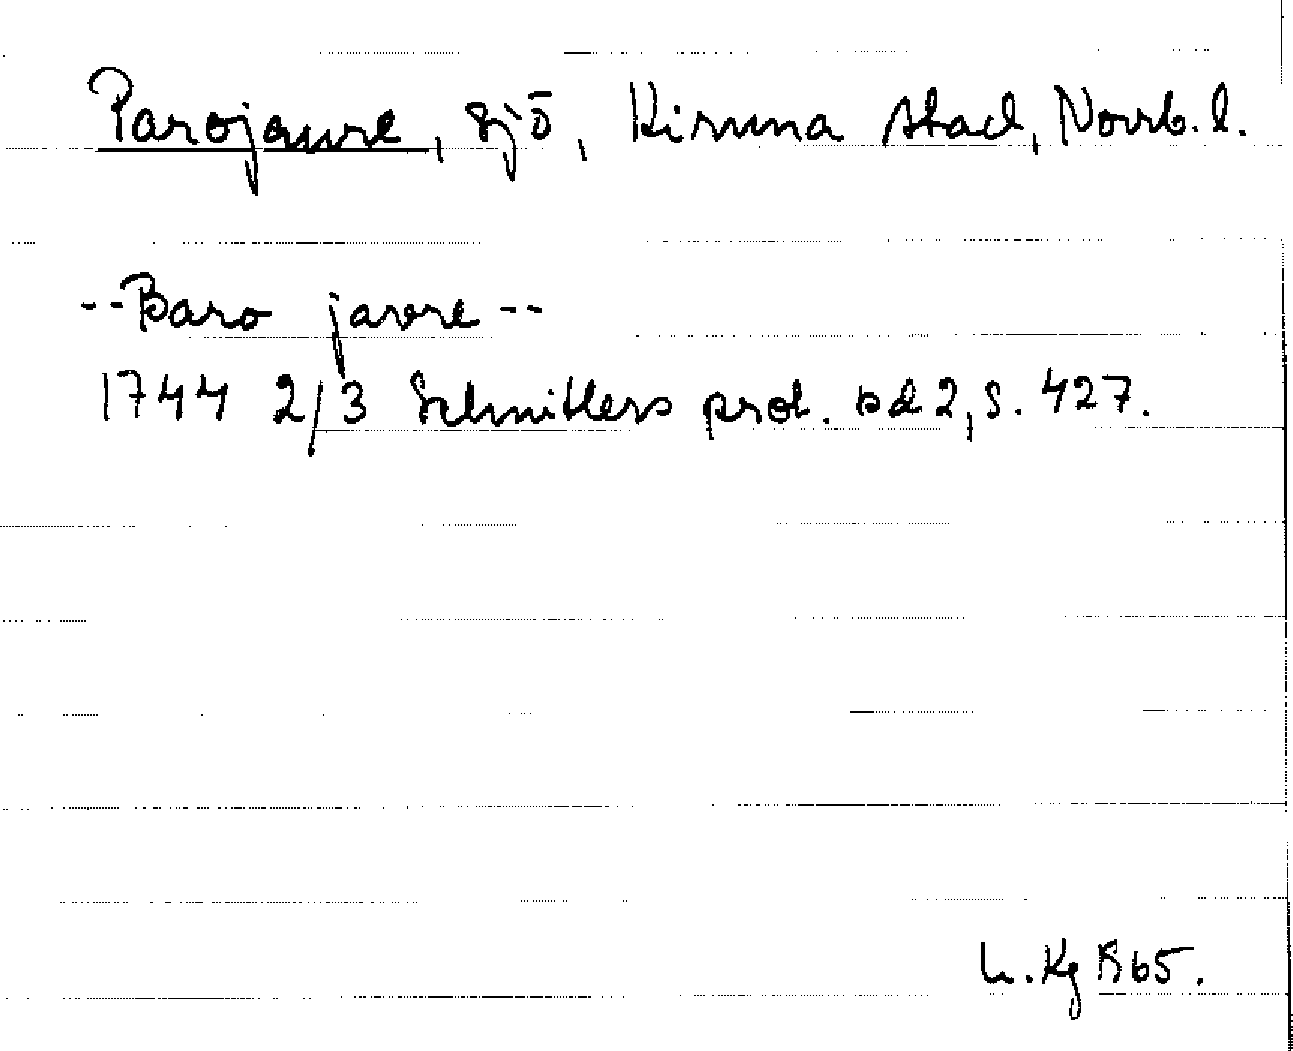 Parojaure, sjö, Kiruna stad, Norrb. l.
--Baro javre--
1744 2/3 Schnitlers prot. bd 2, s. 427.
L. Kg R65.